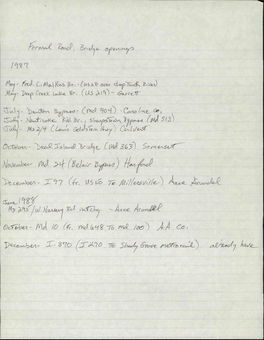 Formal Road, Bridge openings
1987
May- Fred. C. Malkus Br. (US 50 over Choptank River)
May- Deep Creek Lake Br. (US 219) - Garrett
July- Denton Bypass- (Md 404) - Caroline Co.
July- Nanticoke Riv Br., Sharptown Bypass (Md 313)
July- Md 2/4 (Louis Goldstein Hwy) Calvert
October- Deal Island Bridge (Md 363) Somerset
November Md. 24 (Belair Bypass) Harford
December- I 97 (fr. US 50 To Millersville) Anne Arundel
June 1988
Md 295/W Nursery Rd intchg. - Anne Arundel
October- Md 10 (fr. md 648 To md 100) A.A. Co.
December- I-370 (I 270 To Shady Grove metro rail) already have